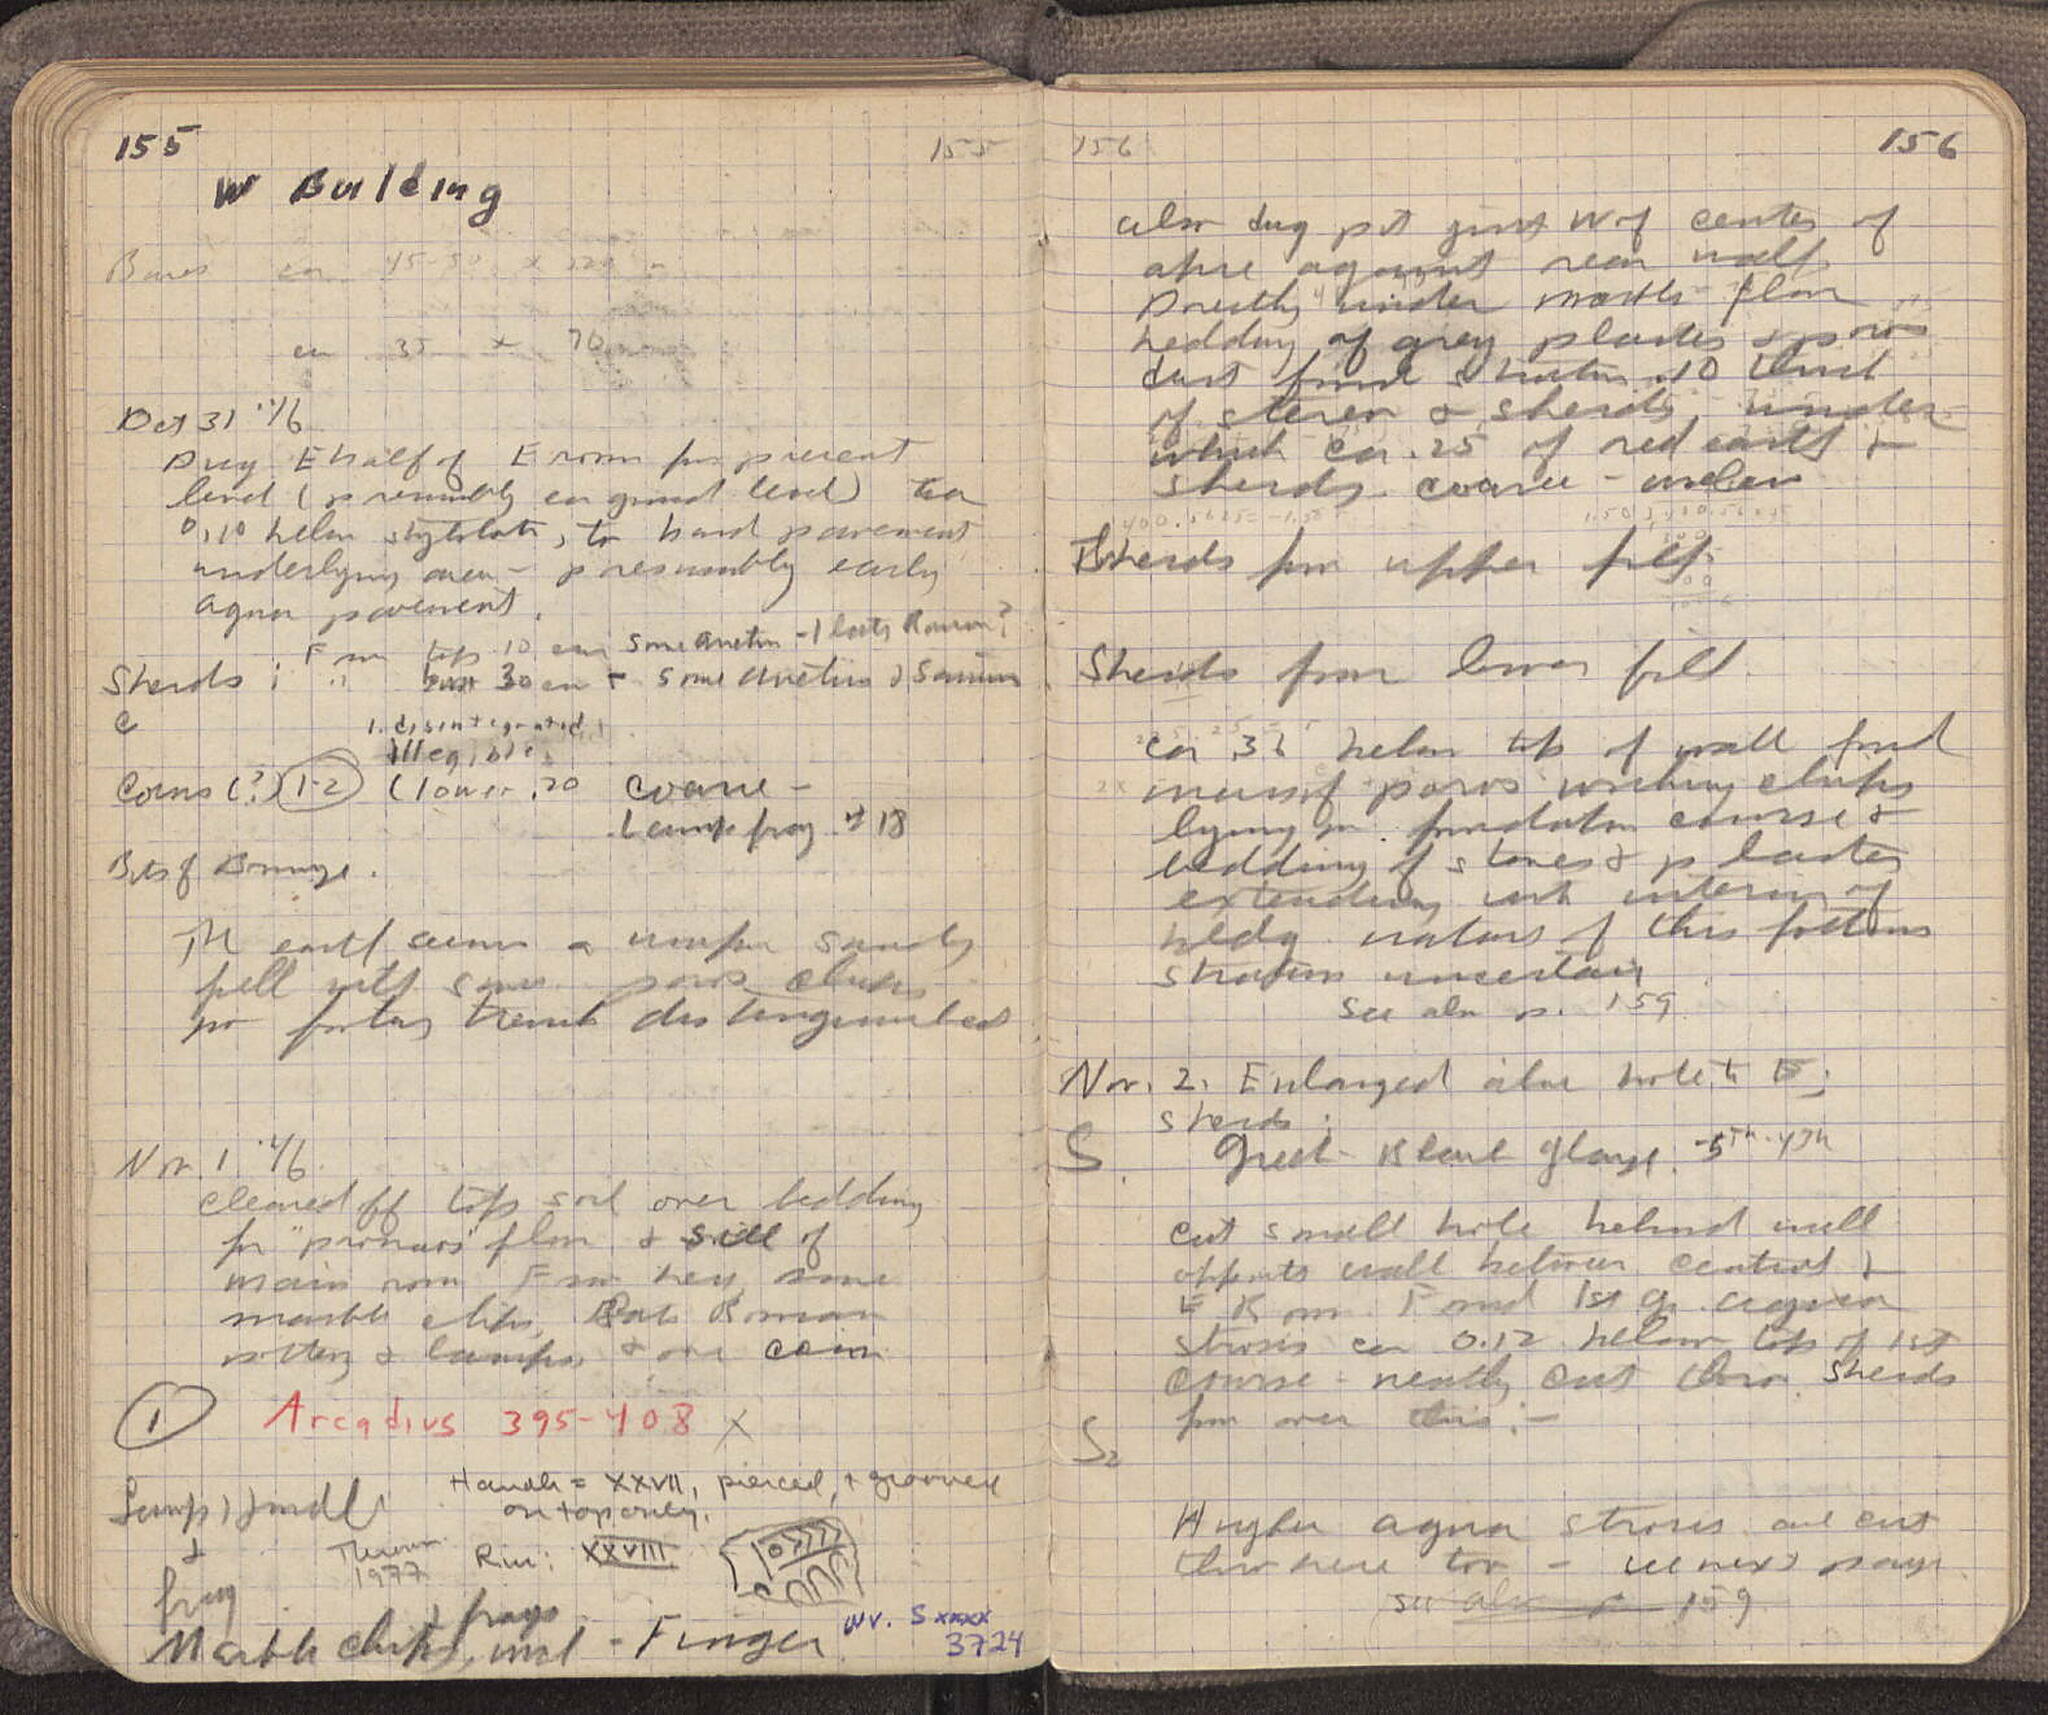 155
155
W Building
Bases ca 45-50 x 120
ca 35 x 70
Oct 31 '46
Dug E half of E room from present
level (presumably ca ground level) to ca
0.10 below stylobate, to hard pavement
underlying area - presumably early
agora pavement.
Sherds : From top 10 cm some arretine - 1 late Roman?
" 30 cm - some arretine & Samian
C
1. disintegrated
illegible
Coins (?) 1-2 (lower .20 coarse -
Lamp frag #18
Bits of Bronze.
The earth seems a uniform sandy
fill with some poros chips
no footing trench distinguished
Nov. 1 '46
Cleared off top soil over bedding
for "pronaos" floor & sill of
main room From here, some
marble chips, Late Roman
pottery & lamps, & one coin
1 Arcadius 395-408 X
Lamp, small
&
frag
Handle = XXVII, pierced, + grooved
on top only.
1977
Rim: XXVIII
& frags
Marble chips, incl - Finger
Inv. S xxxx
3724
156
156
also dug pit just W of center of
apse against rear wall
Directly under marble floor
bedding of grey plaster & poros
dust found stratum .10 thick
of stones & sherds, under
which ca .25 of red earth &
sherds. coarse - unclear
Sherds from upper fill
Sherds from lower fill.
ca .36 below top of wall found
mass of poros working chips
lying on foundation course &
bedding of stones & plaster
extending into interior of
bldg nature of this bottom
stratum uncertain
See also p. 159
Nov. 2. Enlarged above hole to E;
sherds:
S Greek Black glaze. -5th-4th
Cut small hole behind wall
opposite wall between central &
E Room. Found 1st Gr. agora
strosis ca 0.12 below top of 1st
course - neatly cut thru. Sherds
from over this :-
S2
Higher agora stroses are cut
thru here too - see next page
see also p 159